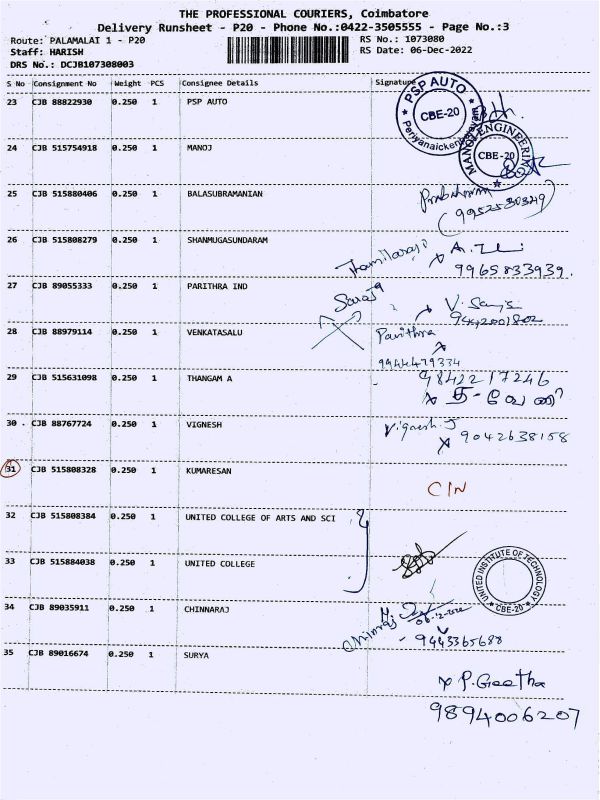 THE PROFESSIONAL COURIERS, Coimbatore
Delivery Runsheet - P20 - Phone No.:0422-3505555 - Page No.:3
Route: PALAMALAI 1 - P20
RS No.: 1073080
Staff: HARISH
RS Date: 06-Dec-2022
DRS No.: DCJB107308003
S No Consignment No Weight PCS Consignee Details Signature
23 CJB 88822930 0.250 1 PSP AUTO
PSP AUTO CBE-20
24 CJB 515754918 0.250 1 MANOJ
ENGINEERING CBE-20
25 CJB 515880406 0.250 1 BALASUBRAMANIAN
26 CJB 515808279 0.250 1 SHANMUGASUNDARAM
9965833939.
27 CJB 89055333 0.250 1 PARITHRA IND
28 CJB 88979114 0.250 1 VENKATASALU
Parithra
29 CJB 515631098 0.250 1 THANGAM A
9842217246
30 CJB 88767724 0.250 1 VIGNESH
Vignesh. J
9042638158
31 CJB 515808328 0.250 1 KUMARESAN
CIN
32 CJB 515808384 0.250 1 UNITED COLLEGE OF ARTS AND SCI
33 CJB 515884038 0.250 1 UNITED COLLEGE
UNITED INSTITUTE OF TECHNOLOGY CBE-20
34 CJB 89035911 0.250 1 CHINNARAJ
9443365688
35 CJB 89016674 0.250 1 SURYA
P. Geetha
9894006207